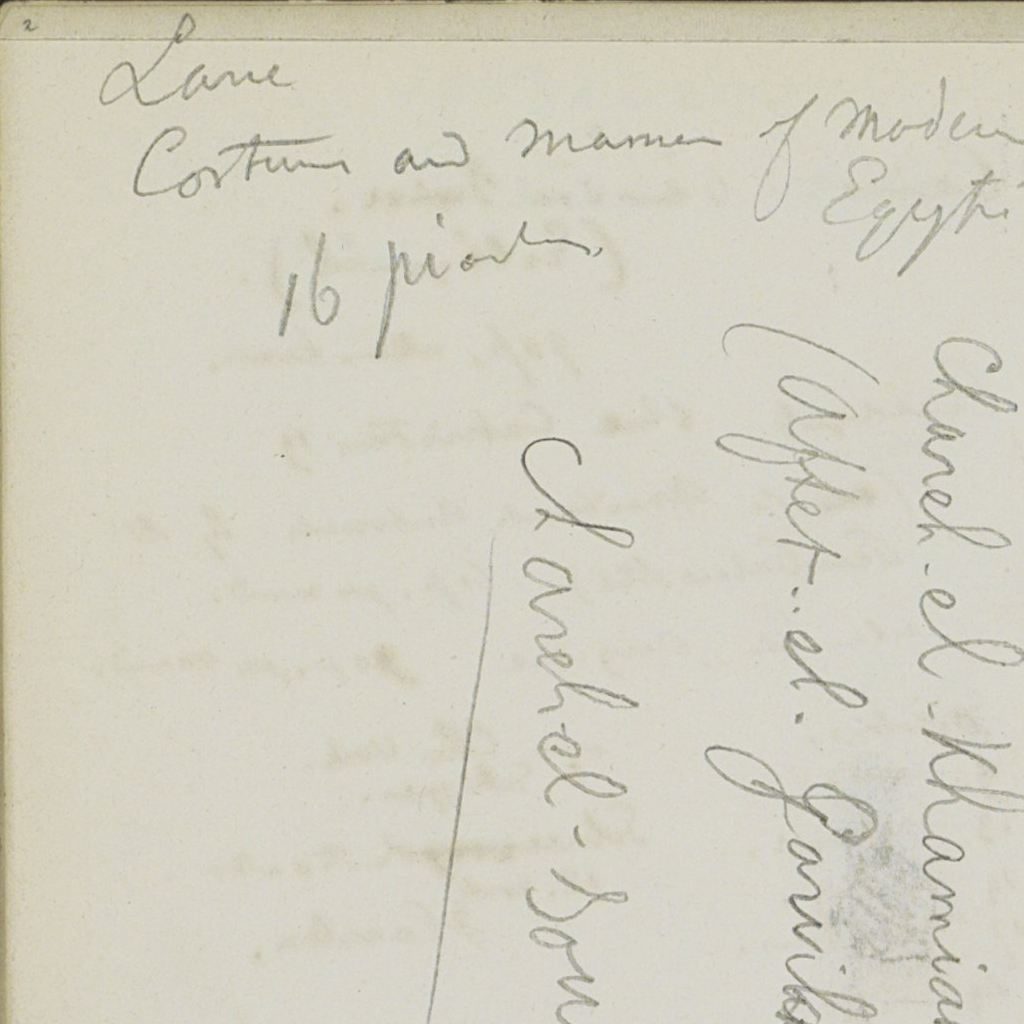 2
Lane
Costum and manner of Modern
Egypti
16 piastres
Chareh-el-Khamia
(after-el-Gamih
Chareh-el-Sou